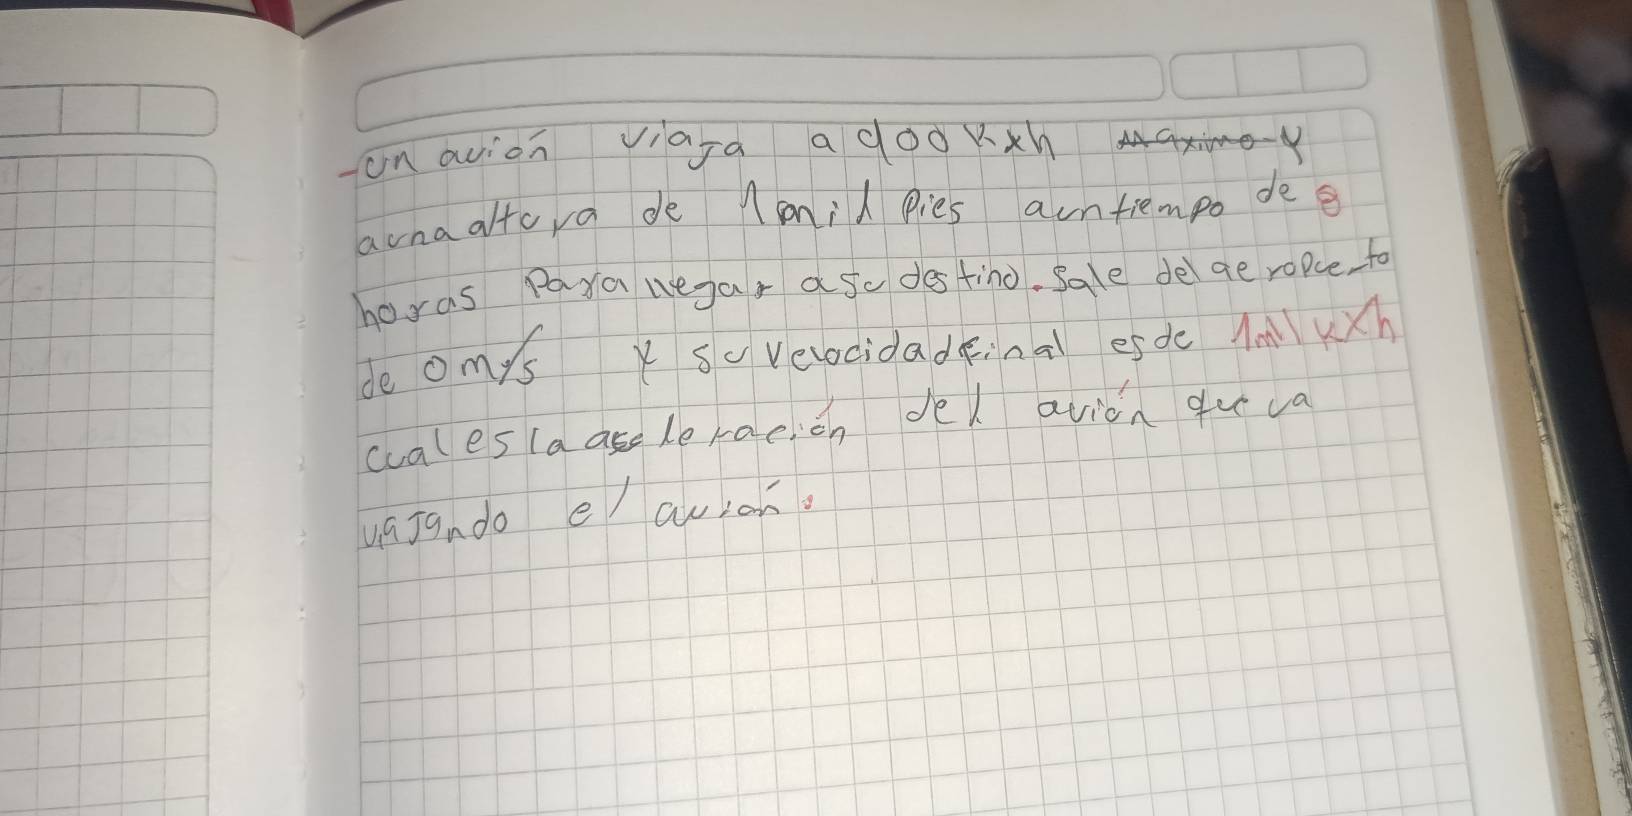 -un avión viaja a 900 Kxh maximo y
auna altura de 1 mil Pies auntiempo de 8
horas Para llegar a su destino. Sale del aeropuerto
de 0 m/s y su velocidad final es de 1 mil kxh
cual es la aseleración del avión que va
viajando el avión.